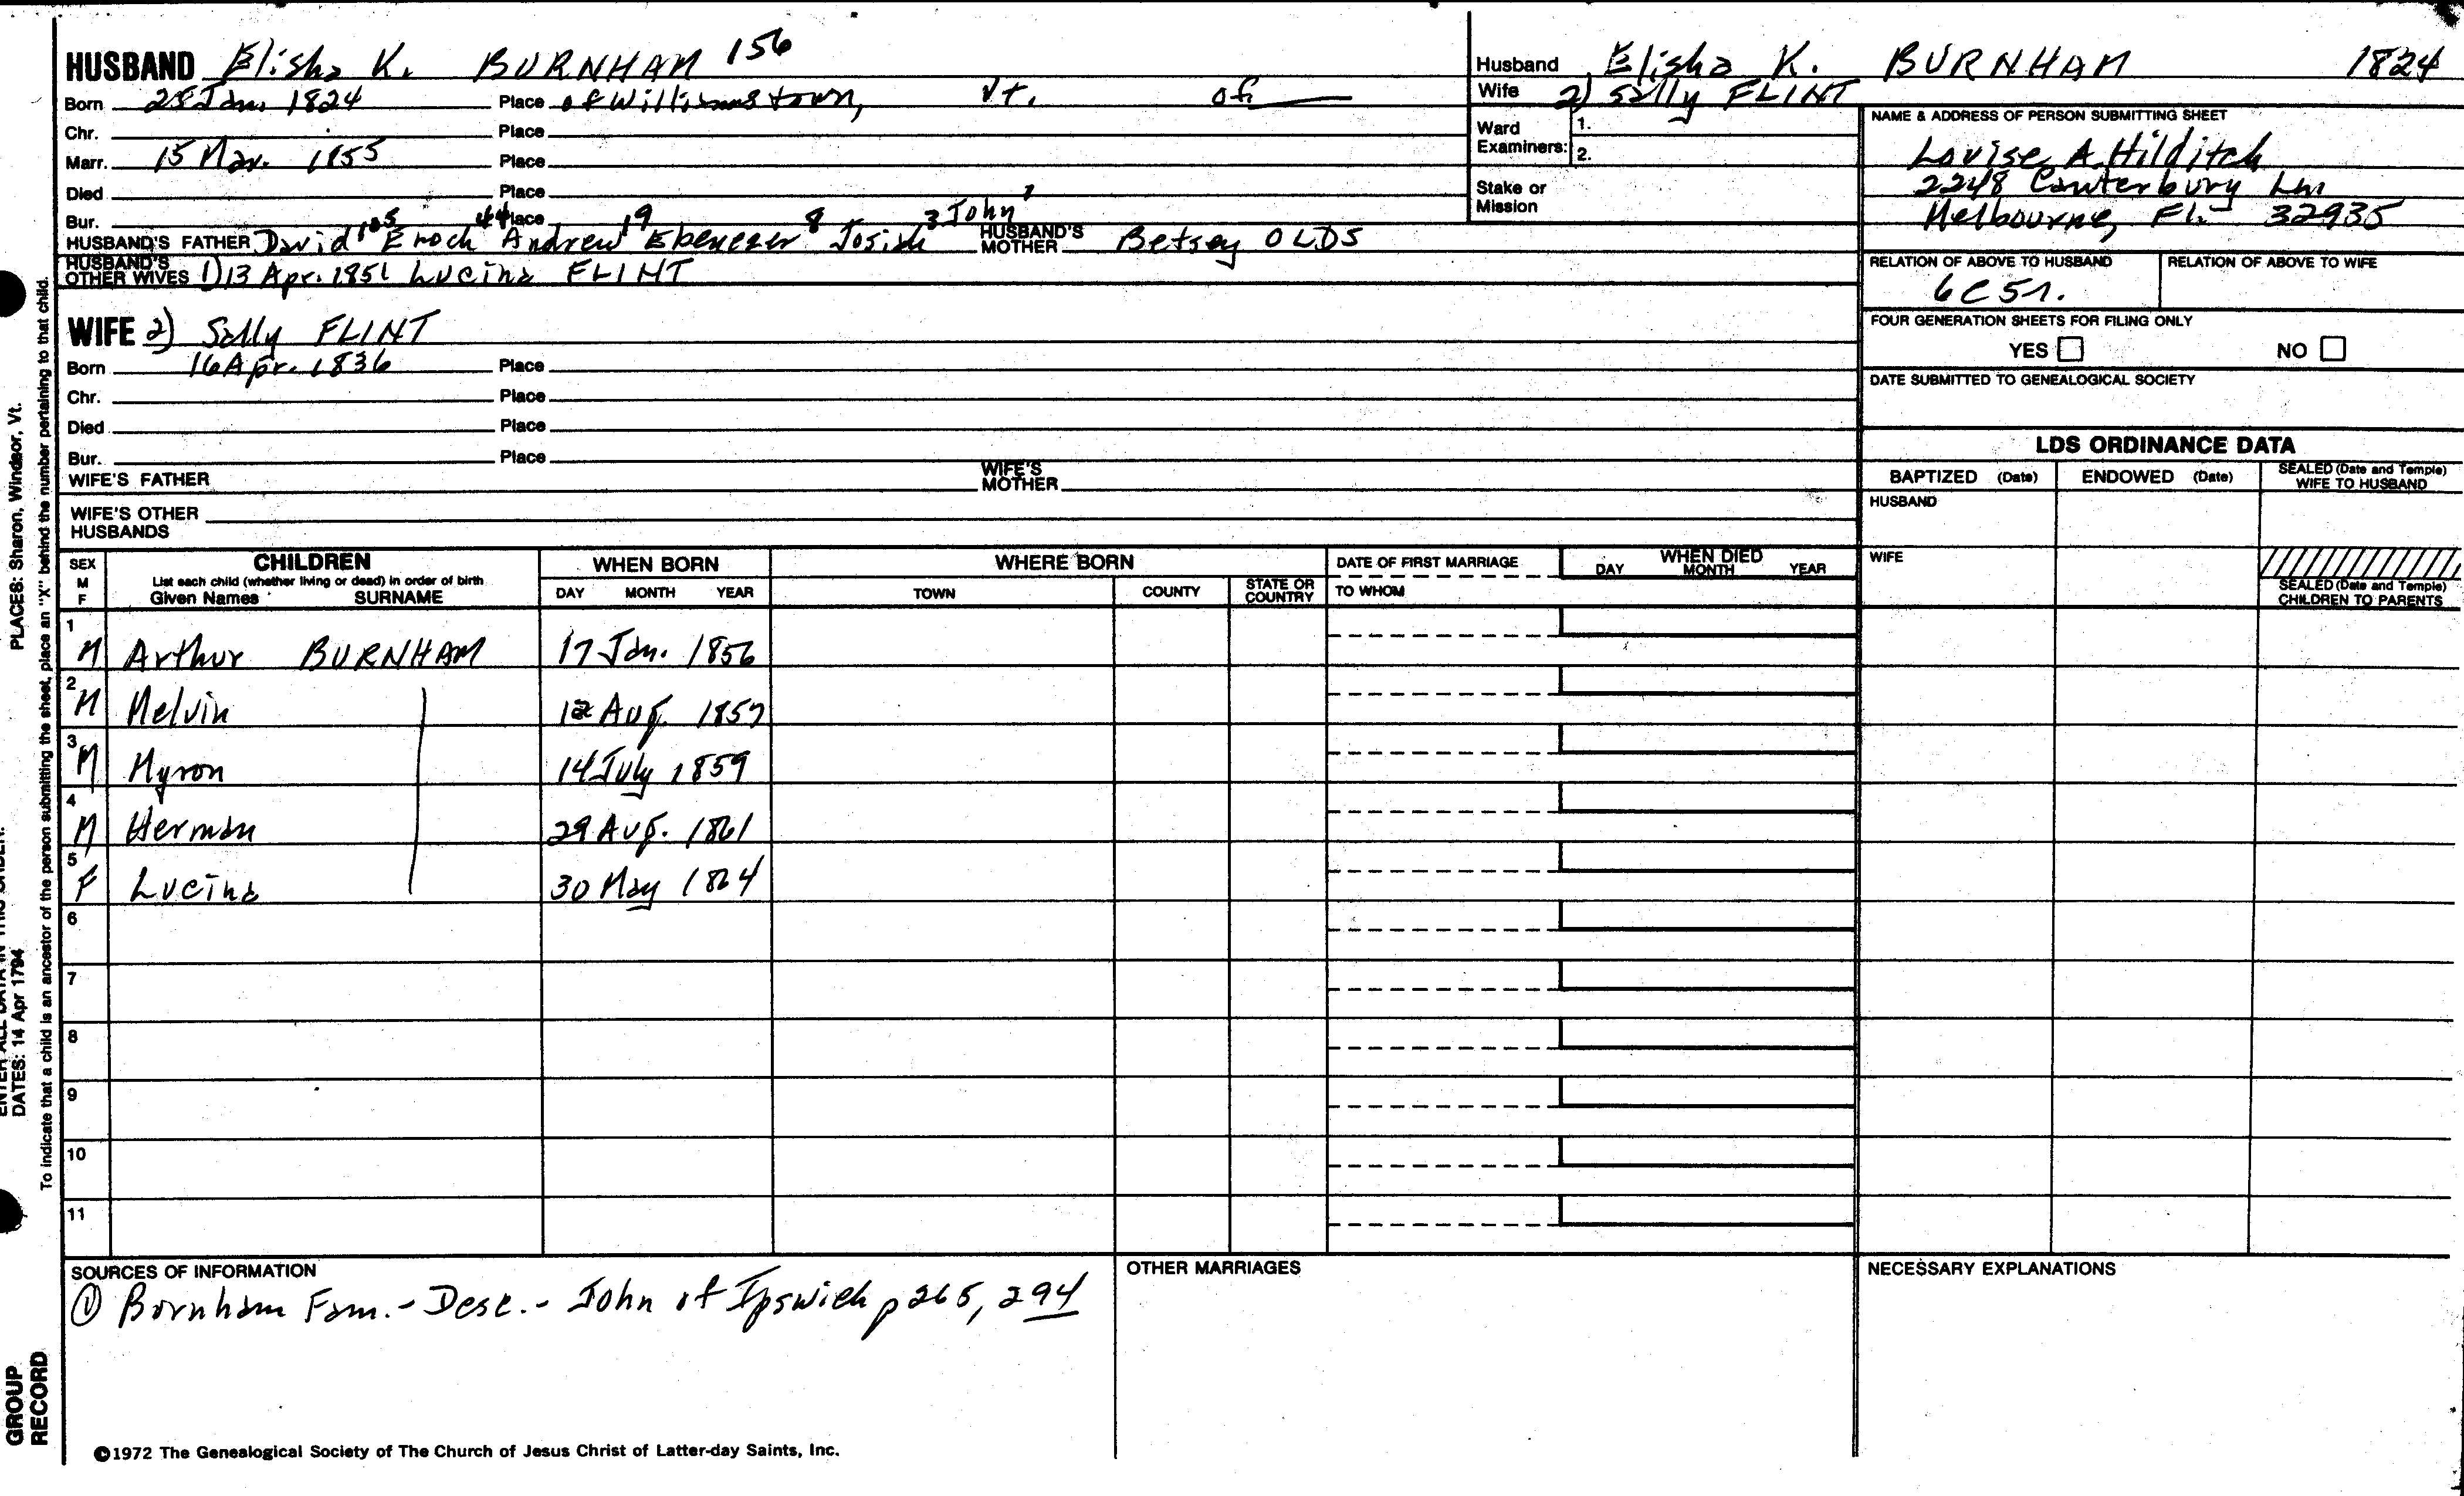 HUSBAND Elisha K. BURNHAM 156
Born 28 Jan. 1824 Place of Williamstown, Vt. of
Chr. Place
Marr. 15 Mar. 1855 Place
Died Place
Bur. Place
HUSBAND'S FATHER David 105 Enoch 44 Andrew 19 Ebenezer 8 Josiah 3 John 1 HUSBAND'S MOTHER Betsey OLDS
HUSBAND'S OTHER WIVES 1) 13 Apr. 1851 Lucina FLINT
WIFE 2) Sally FLINT
Born 16 Apr. 1836 Place
Chr. Place
Died Place
Bur. Place
WIFE'S FATHER WIFE'S MOTHER
WIFE'S OTHER HUSBANDS
Husband Elisha K. BURNHAM 1824
Wife 2) Sally FLINT
Ward Examiners: 1.
2.
Stake or Mission
NAME & ADDRESS OF PERSON SUBMITTING SHEET
Louise A. Hilditch
2248 Canterbury Ln
Melbourne, Fl. 32935
RELATION OF ABOVE TO HUSBAND RELATION OF ABOVE TO WIFE
6C5r.
FOUR GENERATION SHEETS FOR FILING ONLY
YES NO
DATE SUBMITTED TO GENEALOGICAL SOCIETY
LDS ORDINANCE DATA
BAPTIZED (Date) ENDOWED (Date) SEALED (Date and Temple) WIFE TO HUSBAND
HUSBAND
WIFE
SEALED (Date and Temple) CHILDREN TO PARENTS
SEX M F
CHILDREN
List each child (whether living or dead) in order of birth
Given Names SURNAME
WHEN BORN
DAY MONTH YEAR
WHERE BORN
TOWN COUNTY STATE OR COUNTRY
DATE OF FIRST MARRIAGE
TO WHOM
WHEN DIED
DAY MONTH YEAR
1 M Arthur BURNHAM 17 Jan. 1856
2 M Melvin 12 Aug. 1857
3 M Myron 14 July 1859
4 M Herman 29 Aug. 1861
5 F Lucina 30 May 1864
6
7
8
9
10
11
SOURCES OF INFORMATION
① Burnham Fam. - Desc. - John of Ipswich p 265, 294
OTHER MARRIAGES
NECESSARY EXPLANATIONS
©1972 The Genealogical Society of The Church of Jesus Christ of Latter-day Saints, Inc.
PLACES: Sharon, Windsor, Vt.
DATES: 14 Apr 1794
To indicate that a child is an ancestor of the person submitting the sheet, place an "X" behind the number pertaining to that child.
GROUP
RECORD